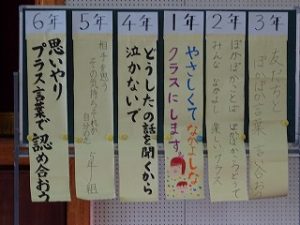 6年
思いやり
プラス言葉で認め合おう
5年
相手を思う
その気持ちそれが
5年1組
4年
どうしたの話を聞くから
泣かないで
1年
やさしくてなかよしな
クラスにします。
2年
ぽかぽかことば
みんななかよし 楽しいクラス
3年
友だちと
ぽかぽか言葉 言い合おう